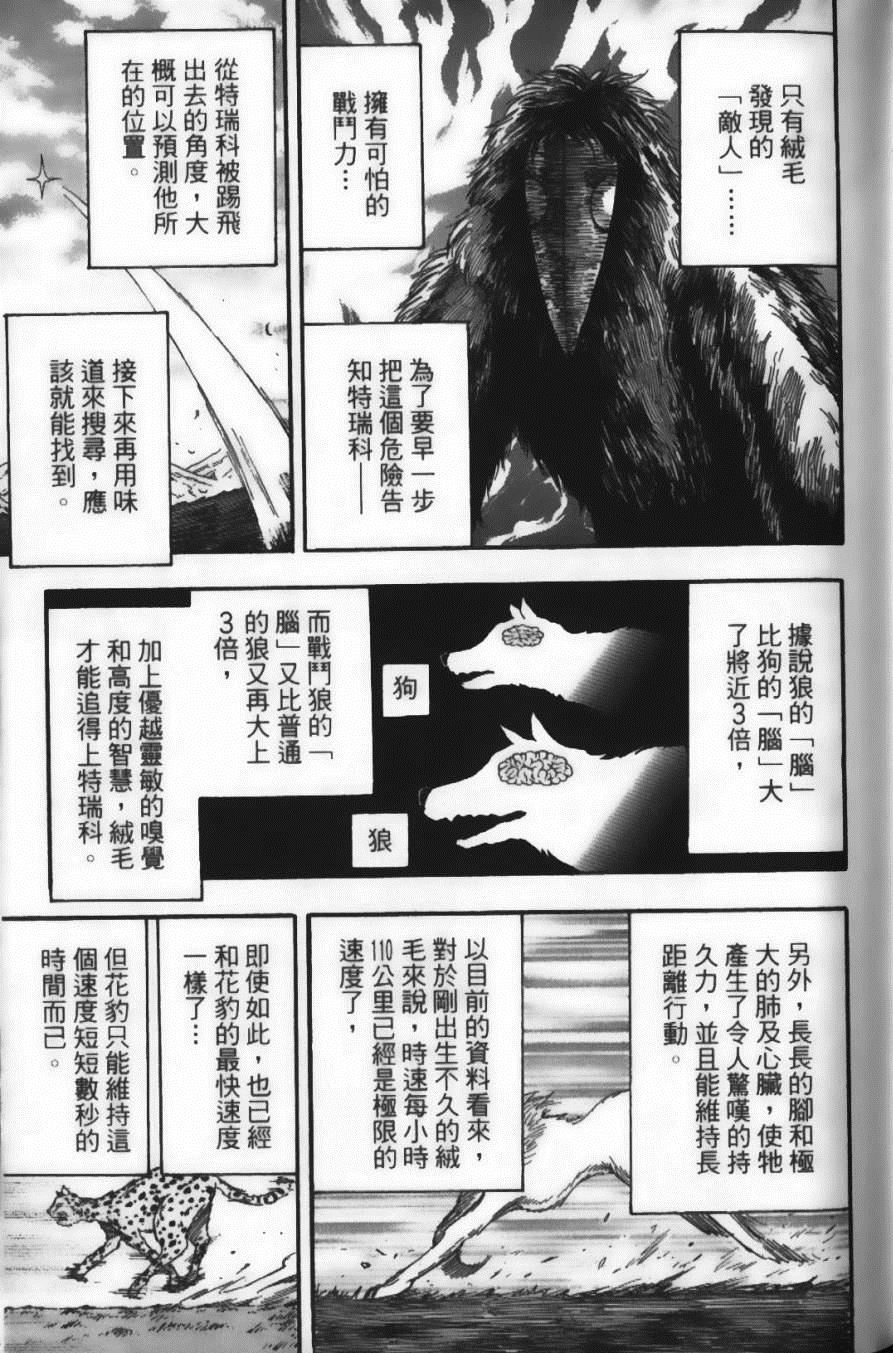 只有絨毛
發現的
「敵人」……
擁有可怕的
戰鬥力…
為了要早一步
把這個危險告
知特瑞科——
從特瑞科被踢飛
出去的角度，大
概可以預測他所
在的位置。
接下來再用味
道來搜尋，應
該就能找到。
據說狼的「腦」
比狗的「腦」大
了將近3倍，
狗
狼
而戰鬥狼的「
腦」又比普通
的狼又再大上
3倍，
加上優越靈敏的嗅覺
和高度的智慧，絨毛
才能追得上特瑞科。
另外，長長的腳和極
大的肺及心臟，使牠
產生了令人驚嘆的持
久力，並且能維持長
距離行動。
以目前的資料看來，
對於剛出生不久的絨
毛來說，時速每小時
110公里已經是極限的
速度了，
即使如此，也已經
和花豹的最快速度
一樣了…
但花豹只能維持這
個速度短短數秒的
時間而已。